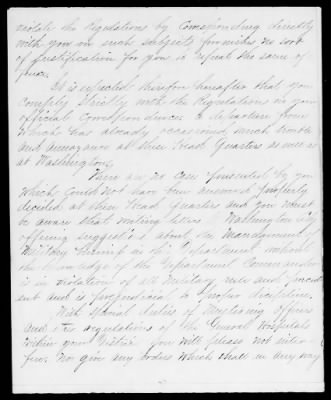 violate the Regulations by Corresponding directly
with you on such subjects furnishes no sort
of justification for you to repeat the same of
fence.
It is expected therefore hereafter that you
comply strictly with the Regulations in your
official Correspondence a departure from
which has already occasioned much trouble
and annoyance at these Head Quarters as well as
at Washington.
There are no Cases presented by you
which could not have been answered properly
decided at these Head Quarters and you must
be aware that writing letters to Washington City
offering suggestions about the Management of
Military in this Department without
the knowledge of the Department Commander
is in violation of all Military rule and precedent
and is prejudicial to proper discipline.
With Special duties of Mustering Officers
and the regulations of the General Hospitals
within your District you will please not inter
fere. Nor give any orders which shall in any way